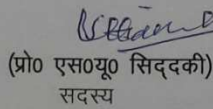 (प्रो0 एस0यू0 सिद्दकी)
सदस्य